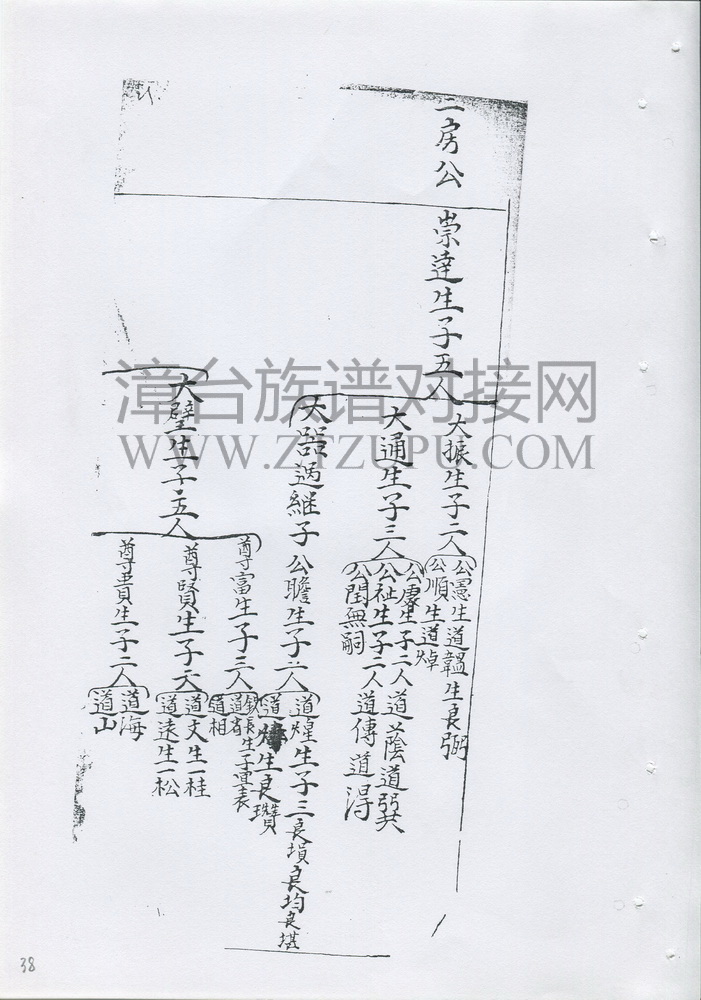 二房公
崇達生子五人
大振生子二人
公憲生道韞生良弼
公順生道焯
大通生子三人
公虞生子二人道蔭道巽
公祉生子二人道傳道得
公閏無嗣
大器過繼子公瞻生子二人
道煌生子三良塤良均良堪
道生良瓚
大壁生子五人
尊富生子三人
道省
道相
尊賢生子二人
道文生一桂
道遠生一松
尊貴生子二人
道海
道山
漳台族谱对接网
WWW.ZTZUPU.COM
38